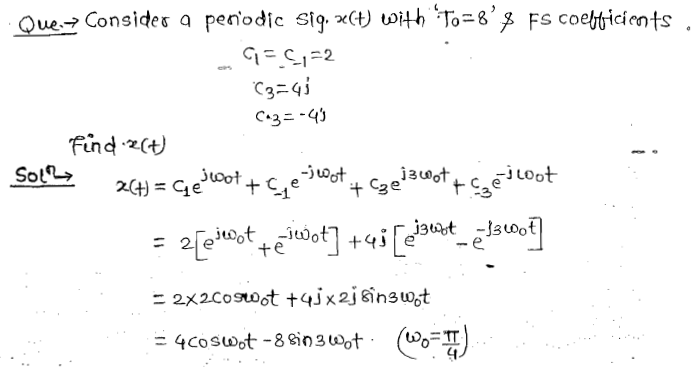 Que.→ Consider a periodic sig. x(t) with 'T₀=8' & FS coefficients.
C₁ = C₋₁ = 2
C₃ = 4j
C₋₃ = -4j
Find x(t)
Solⁿ→ x(t) = C₁e^{jω₀t} + C₋₁e^{-jω₀t} + C₃e^{j3ω₀t} + C₋₃e^{-jω₀t}
= 2[e^{jω₀t} + e^{-jω₀t}] + 4j[e^{j3ω₀t} - e^{-j3ω₀t}]
= 2×2cosω₀t + 4j×2j sin3ω₀t
= 4cosω₀t - 8sin3ω₀t. (ω₀ = π/4)